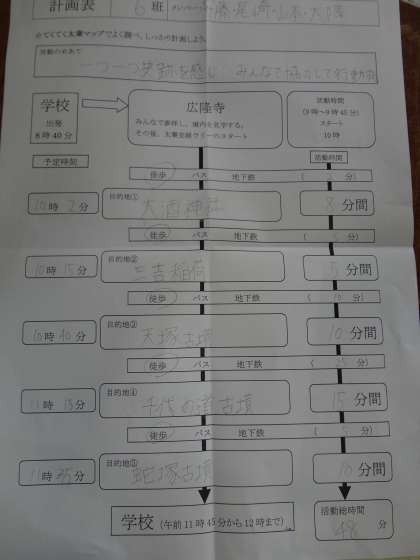 計画表 6班
☆てくてく太秦マップでよく調べ、しっかり計画しよう。
活動のめあて
一つ一つ史跡を感じ みんなで協力して行動
学校
出発
8時40分
広隆寺
みんなで参拝し、境内を見学する。
その後、太秦史跡ラリーのスタート
活動時間
(9時〜9時45分)
スタート
10時
予定時間
活動時間
徒歩 バス 地下鉄 ( 分)
10時 2分
目的地①
大酒神社
8分間
徒歩 バス 地下鉄 ( 分)
10時 15分
目的地②
三吉稲荷
5分間
徒歩 バス 地下鉄 ( 10 分)
10時 40分
目的地③
天塚古墳
10分間
徒歩 バス 地下鉄 ( 25 分)
11時 15分
目的地④
千代の道古墳
15分間
徒歩 バス 地下鉄 ( 5 分)
11時 35分
目的地⑤
蛇塚古墳
10分間
学校(午前11時45分から12時まで)
活動総時間
48分